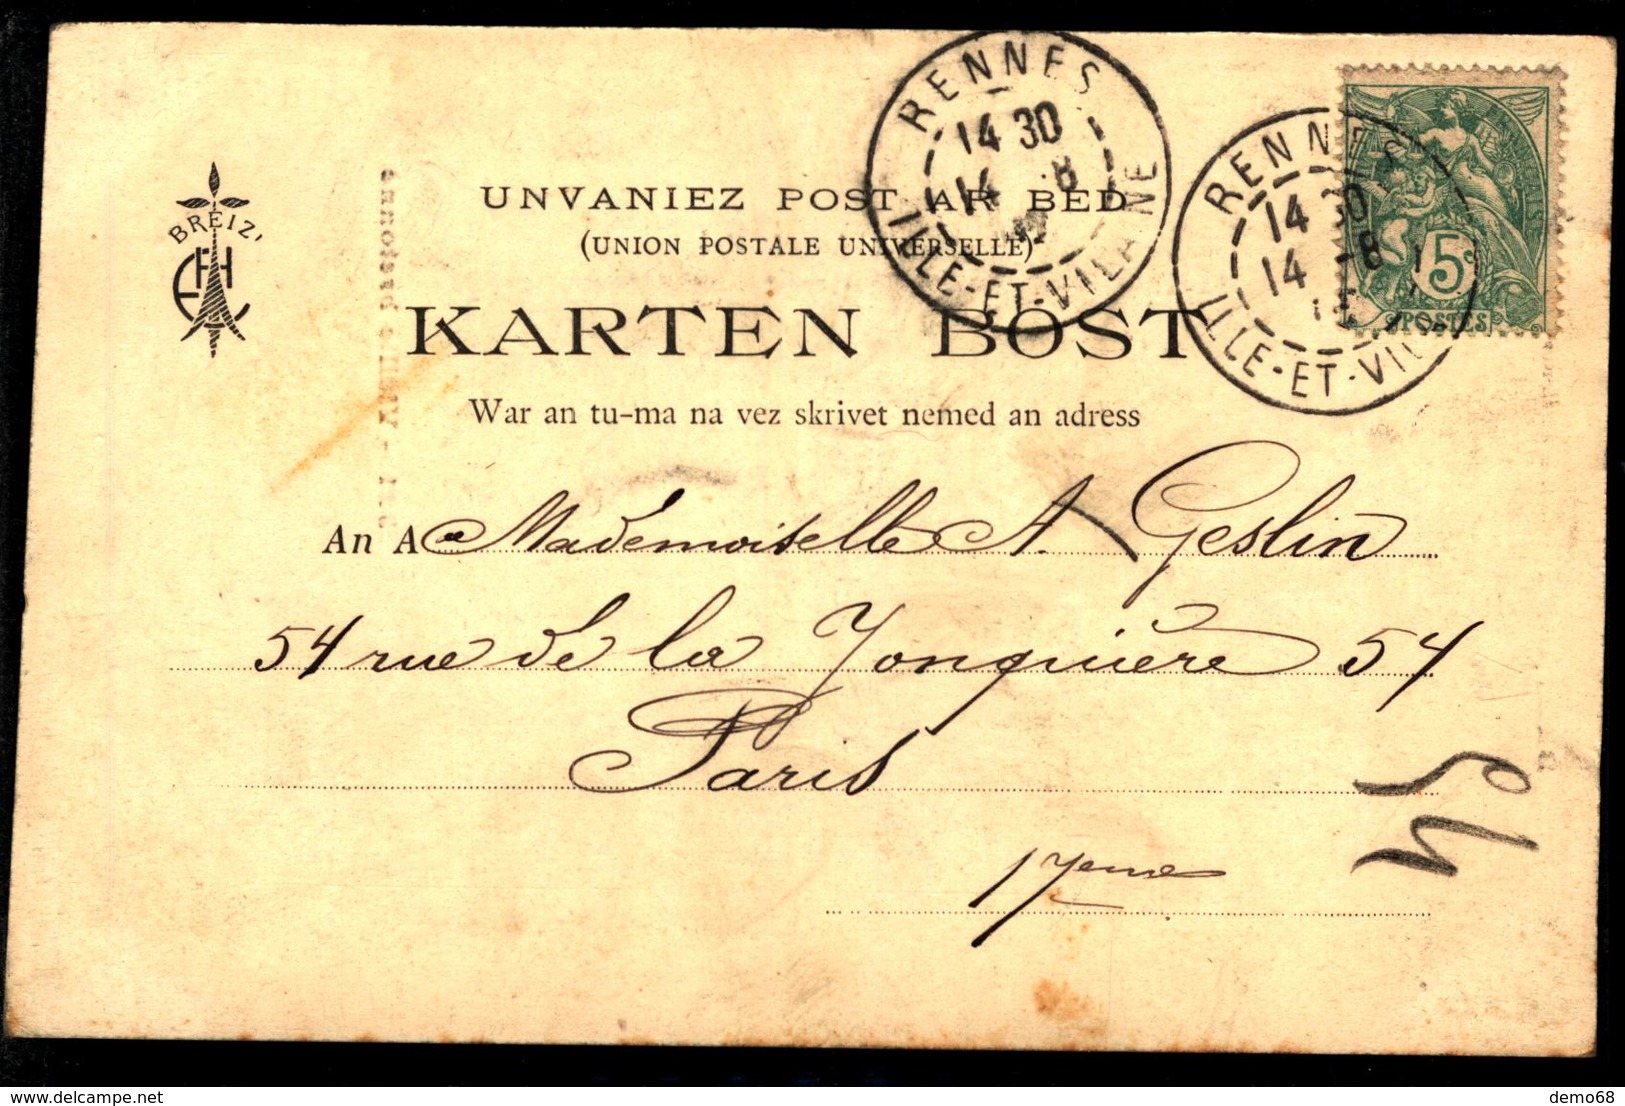 UNVANIEZ POST AR BED
(UNION POSTALE UNIVERSELLE)
KARTEN BOST
War an tu-ma na vez skrivet nemed an adress
BREIZ
RENNES
14 30
14 8
ILLE-ET-VILAINE
RENNES
14 30
14 -8
ILLE-ET-VIL
5c
POSTES
An A Mademoiselle A. Geslin
54 rue de la Jonquière 54
Paris
17eme
© delcampe.net
demo68